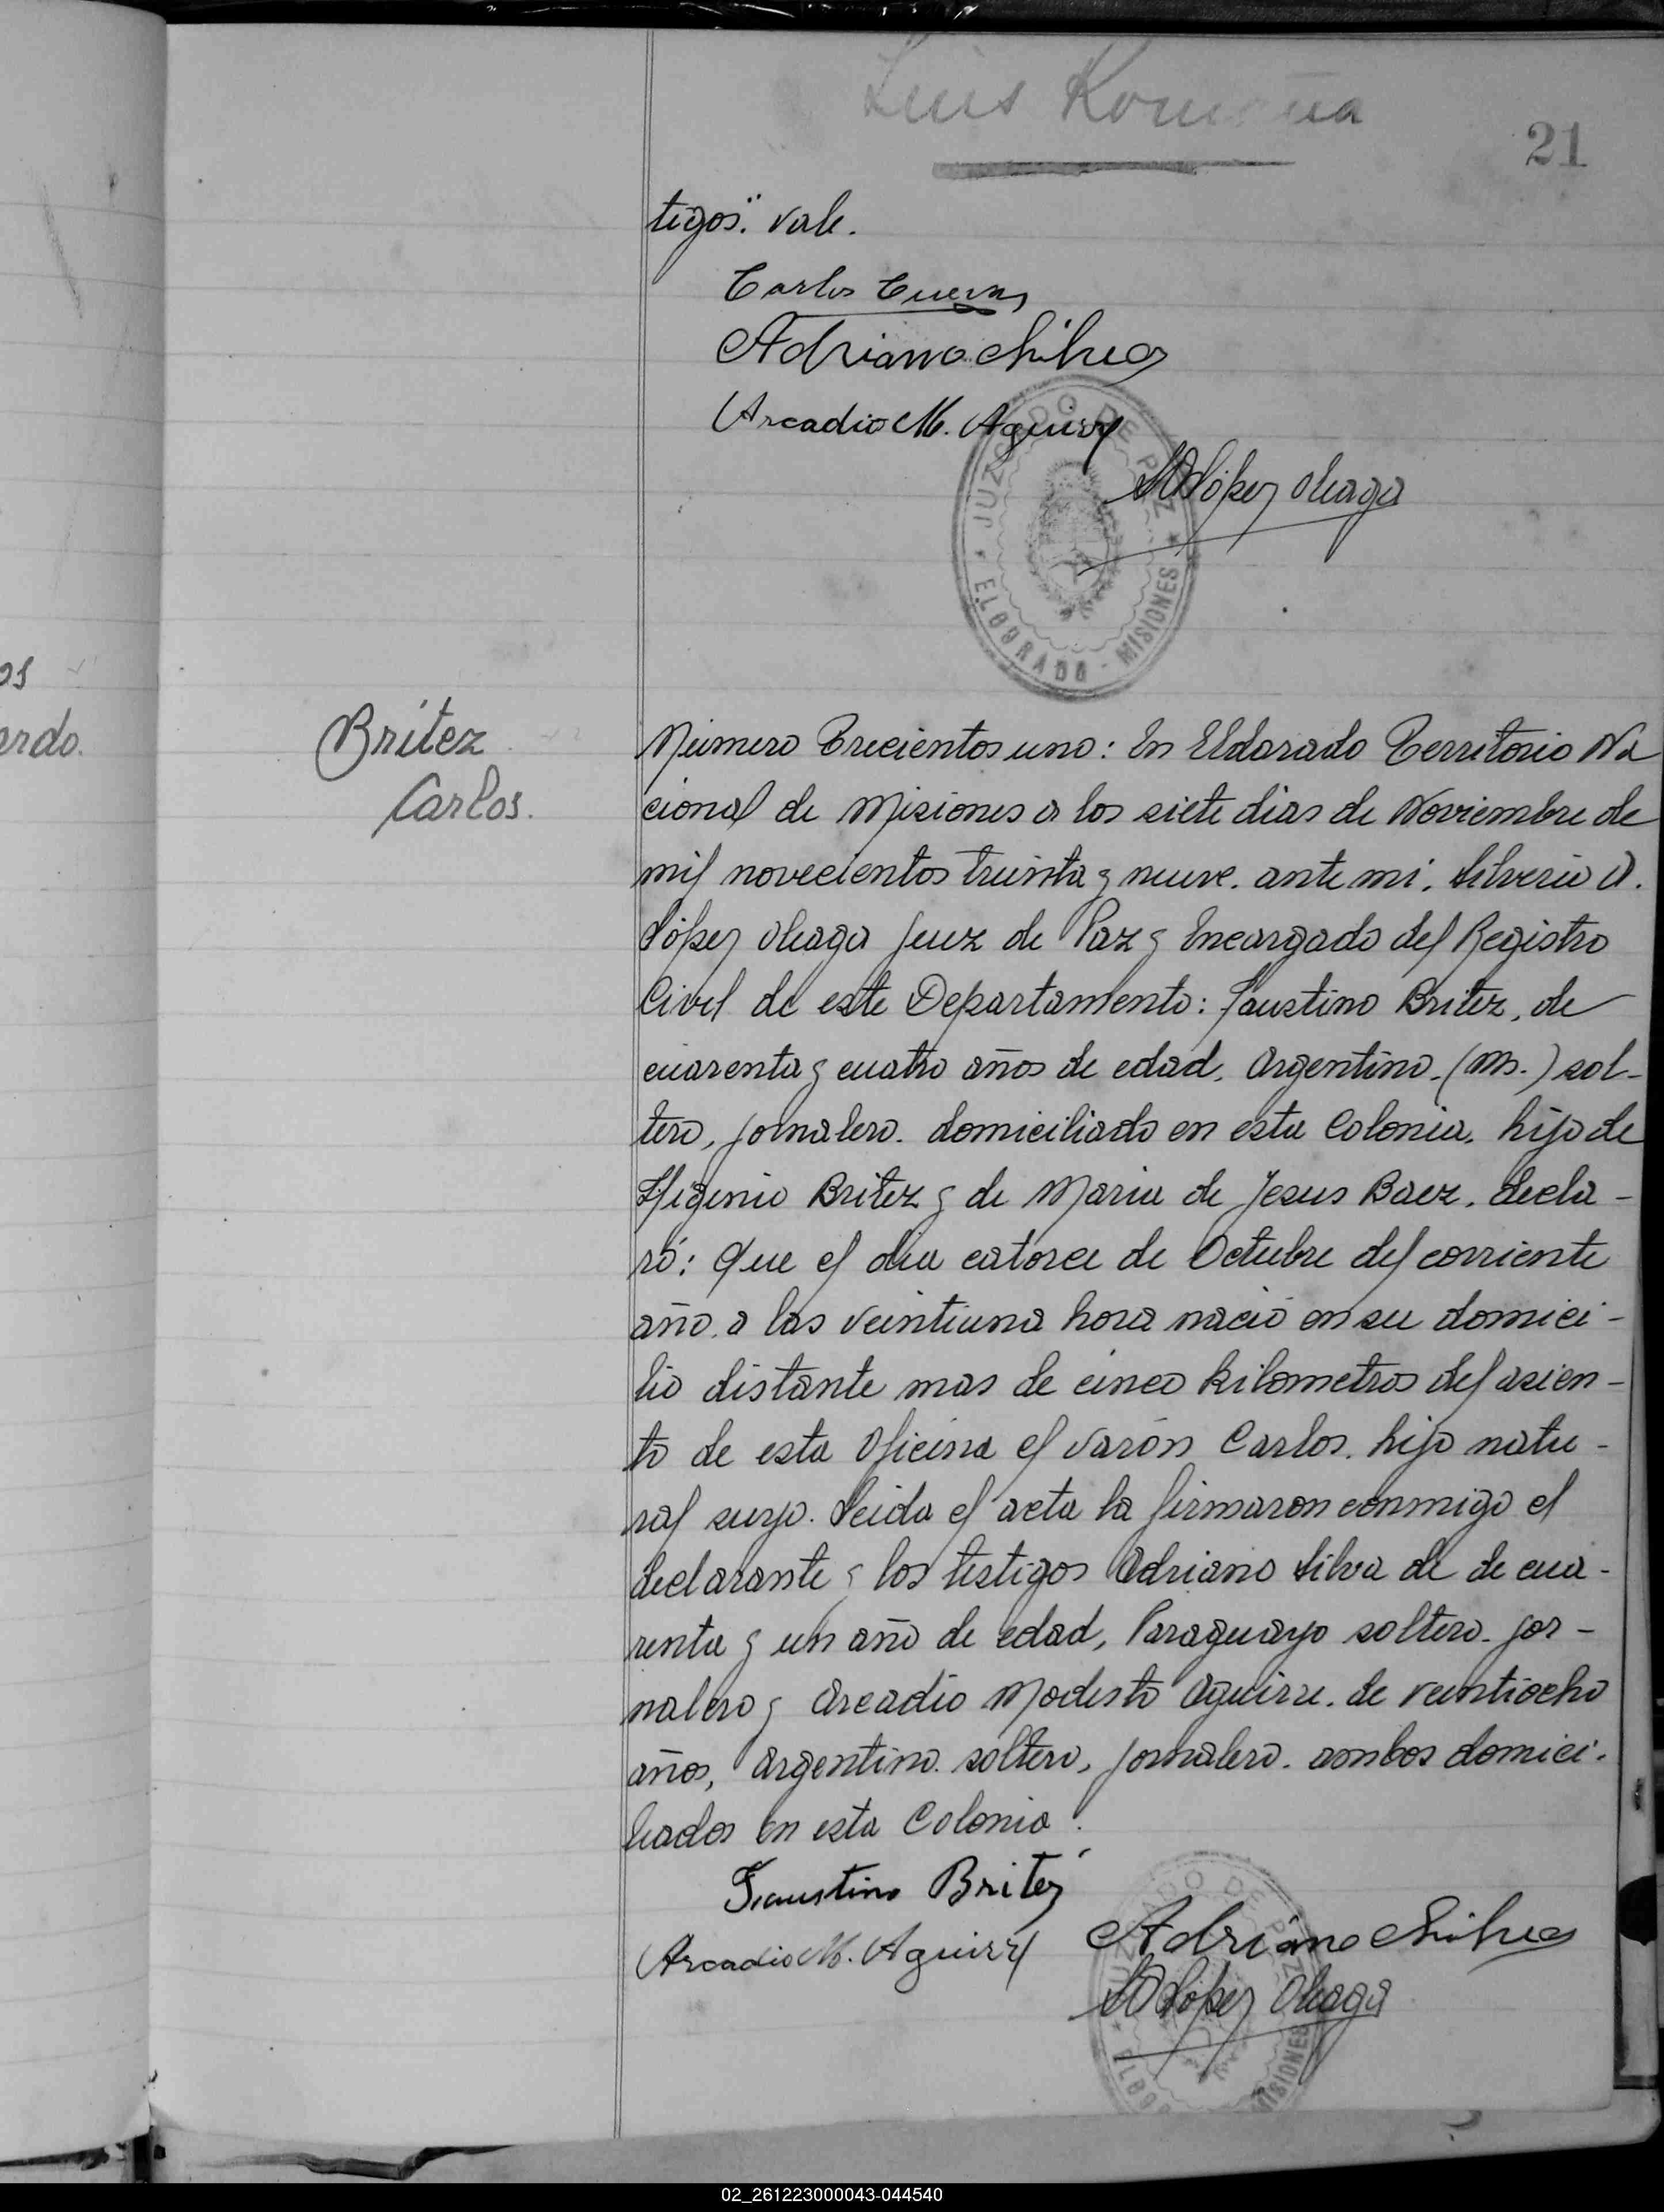 Luis
21
tigos". Vale.
Carlos Cuevas
Adriano Silva
Arcadio M. Aguirre
JUZGADO DE PAZ
S A López Oleaga
ELDORADO - MISIONES
os
erdo.
Britez
Carlos.
Número Trecientos uno: En Eldorado Territorio Na
cional de Misiones a los siete dias de Noviembre de
mil novecientos treinta y nueve. ante mi. Silverio A.
López Oleaga Juez de Paz y Encargado del Registro
Civil de este Departamento: Faustino Britez, de
cuarenta y cuatro años de edad. Argentino. (ms.) sol-
tero, jornalero. domiciliado en esta Colonia. hijo de
Higinio Britez y de Maria de Jesus Baez. decla-
ró: Que el dia catorce de Octubre del corriente
año. a las veintiuna hora nació en su domici-
lio distante mas de cinco kilometros del asien-
to de esta Oficina el varón Carlos. hijo natu-
ral suyo. Leida el acta la firmaron conmigo el
declarante y los testigos Adriano Silva de de cua-
renta y un año de edad, Paraguayo soltero. jor-
nalero y Arcadio Modesto Aguirre. de veintiocho
años, Argentino. soltero, jornalero. ambos domici.
liados en esta Colonia.
Faustino Britez
Arcadio M. Aguirre
Adriano Silva
JUZGADO DE PAZ
S A López Oleaga
ELDO MISIONES
02_261223000043-044540